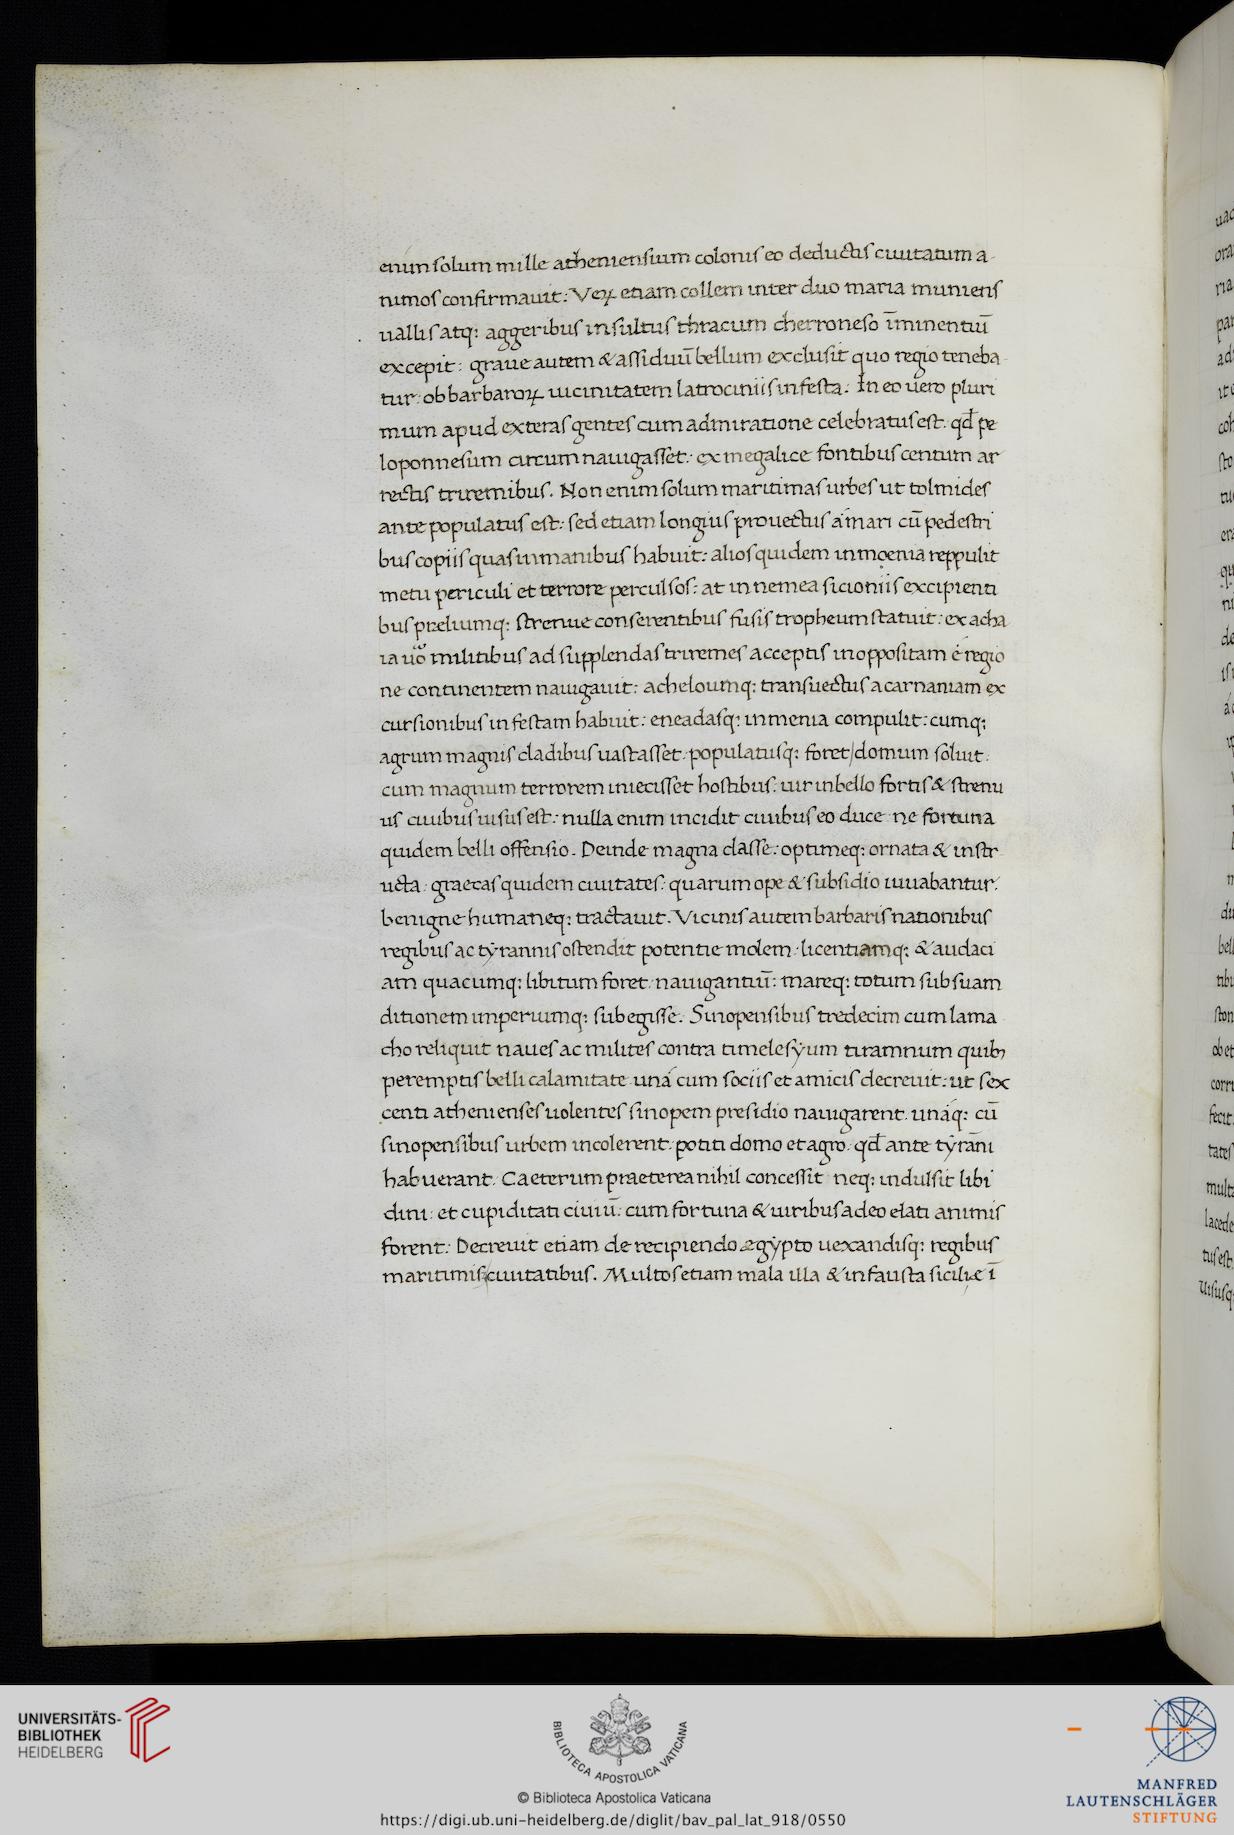 enim solum mille atheniensium colonis eo deductis ciuitatum a-
nimos confirmauit: Veꝝ etiam collem inter duo maria muniens
uallis atq: aggeribus insultus thracum cherroneso īminentiū
excepit: graue autem & assiduū bellum exclusit quo regio teneba-
tur: ob barbaroꝝ uicinitatem latrociniis infesta: In eo uero pluri
mum apud exteras gentes cum admiratione celebratus est. qđ pe
loponnesum circum nauigasset: ex megalice fontibus centum ar
rectis triremibus. Non enim solum maritimas urbes ut tolmides
ante populatus est: sed etiam longius prouectus a mari cū pedestri
bus copiis quas in manibus habuit: alios quidem in moenia reppulit
metu periculi et terrore perculsos: at in nemea sicioniis excipienti
bus preliumq: strenue conserentibus fusis tropheum statuit: ex acha
ia uo militibus ad supplendas triremes acceptis in oppositam é regio
ne continentem nauigauit: acheloumq: transuectus acarnaniam ex
cursionibus infestam habuit: eneadasq: in menia compulit: cumq:
agrum magnis cladibus uastasset. populatusq: foret/domum soluit.
cum magnum terrorem iniecisset hostibus: uir in bello fortis & strenu
us ciuibus uisus est: nulla enim incidit ciuibus eo duce ne fortuna
quidem belli offensio. Deinde magna classe: optimeq: ornata & instr-
ucta: graecas quidem ciuitates: quarum ope & subsidio iuuabantur:
benigne humaneq: tractauit. Vicinis autem barbaris nationibus
regibus ac tyrannis ostendit potentie molem: licentiamq: & audaci
am quacumq: libitum foret nauigantiū: mareq: totum sub suam
ditionem imperiumq: subegisse. Sinopensibus tredecim cum lama
cho reliquit naues ac milites contra timelesyum tiramnum quib;
peremptis belli calamitate uná cum sociis et amicis decreuit: ut sex
centi athenienses uolentes sinopem presidio nauigarent. unáq: cū
sinopensibus urbem incolerent: potiti domo et agro. qđ ante tyrāni
habuerant. Caeterum praeterea nihil concessit neq: indulsit libi
dini: et cupiditati ciuiū: cum fortuna & uiribus adeo elati animis
forent: Decreuit etiam de recipiendo ægypto uexandisq: regibus
maritimis ciuitatibus. Multos etiam mala illa & infausta siciliæ ī
UNIVERSITÄTS-
BIBLIOTHEK
HEIDELBERG
BIBLIOTECA APOSTOLICA VATICANA
© Biblioteca Apostolica Vaticana
https://digi.ub.uni-heidelberg.de/diglit/bav_pal_lat_918/0550
MANFRED
LAUTENSCHLÄGER
STIFTUNG